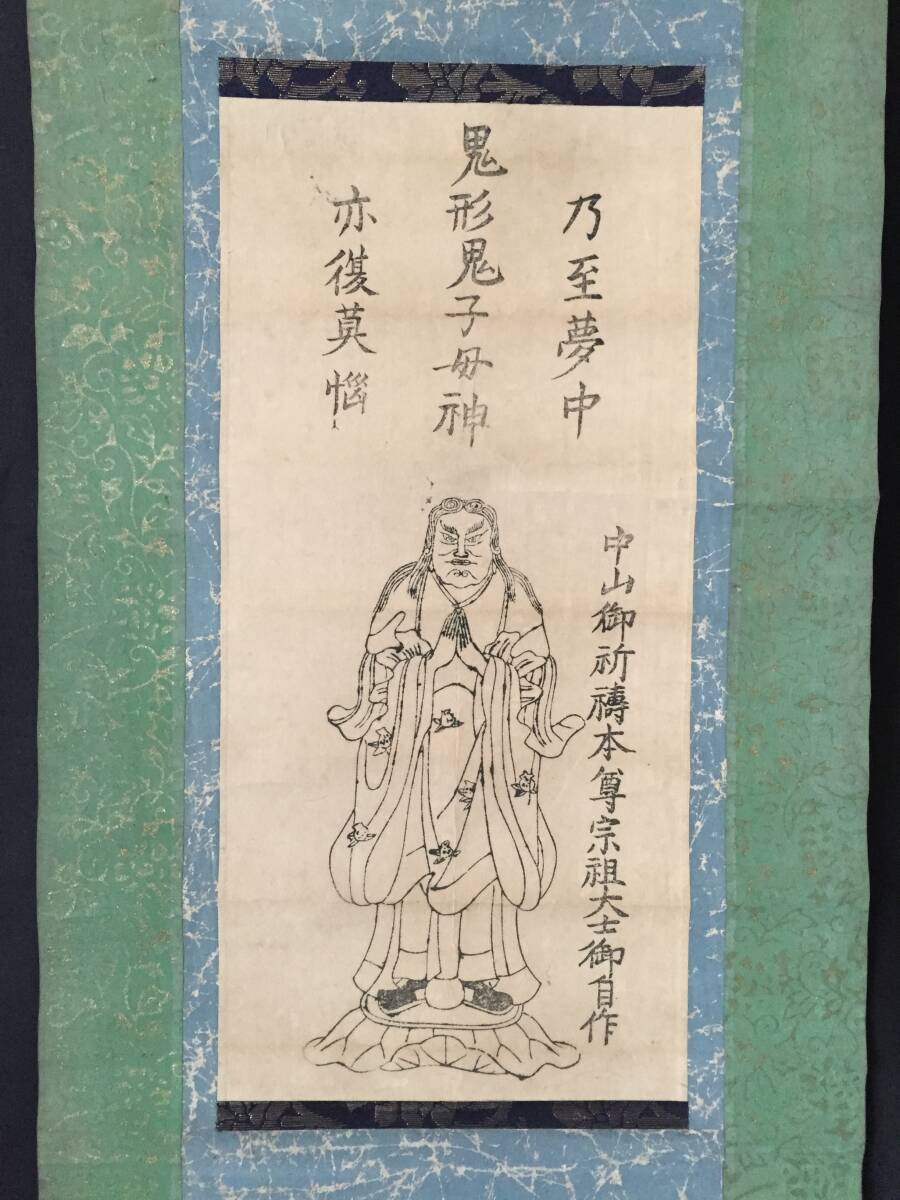 乃至夢中
鬼形鬼子母神
亦復莫惱
中山御祈禱本尊宗祖大士御自作